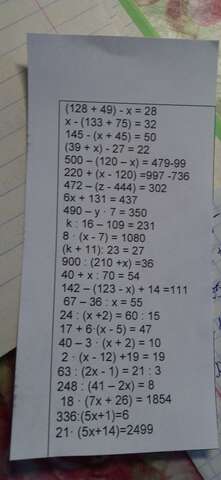 (128 + 49) - x = 28
x - (133 + 75) = 32
145 - (x + 45) = 50
(39 + x) - 27 = 22
500 – (120 – x) = 479-99
220 + (x - 120) =997 -736
472 – (z - 444) = 302
6x + 131 = 437
490 – y · 7 = 350
k : 16 – 109 = 231
8 · (x - 7) = 1080
(k + 11): 23 = 27
900 : (210 +x) =36
40 + x : 70 = 54
142 – (123 -x) + 14 =111
67 – 36 : x = 55
24 : (x +2) = 60 : 15
17 + 6·(x - 5) = 47
40 – 3 · (x + 2) = 10
2 · (x - 12) +19 = 19
63 : (2x - 1) = 21 : 3
248 : (41 – 2x) = 8
18 · (7x + 26) = 1854
336:(5x+1)=6
21· (5x+14)=2499